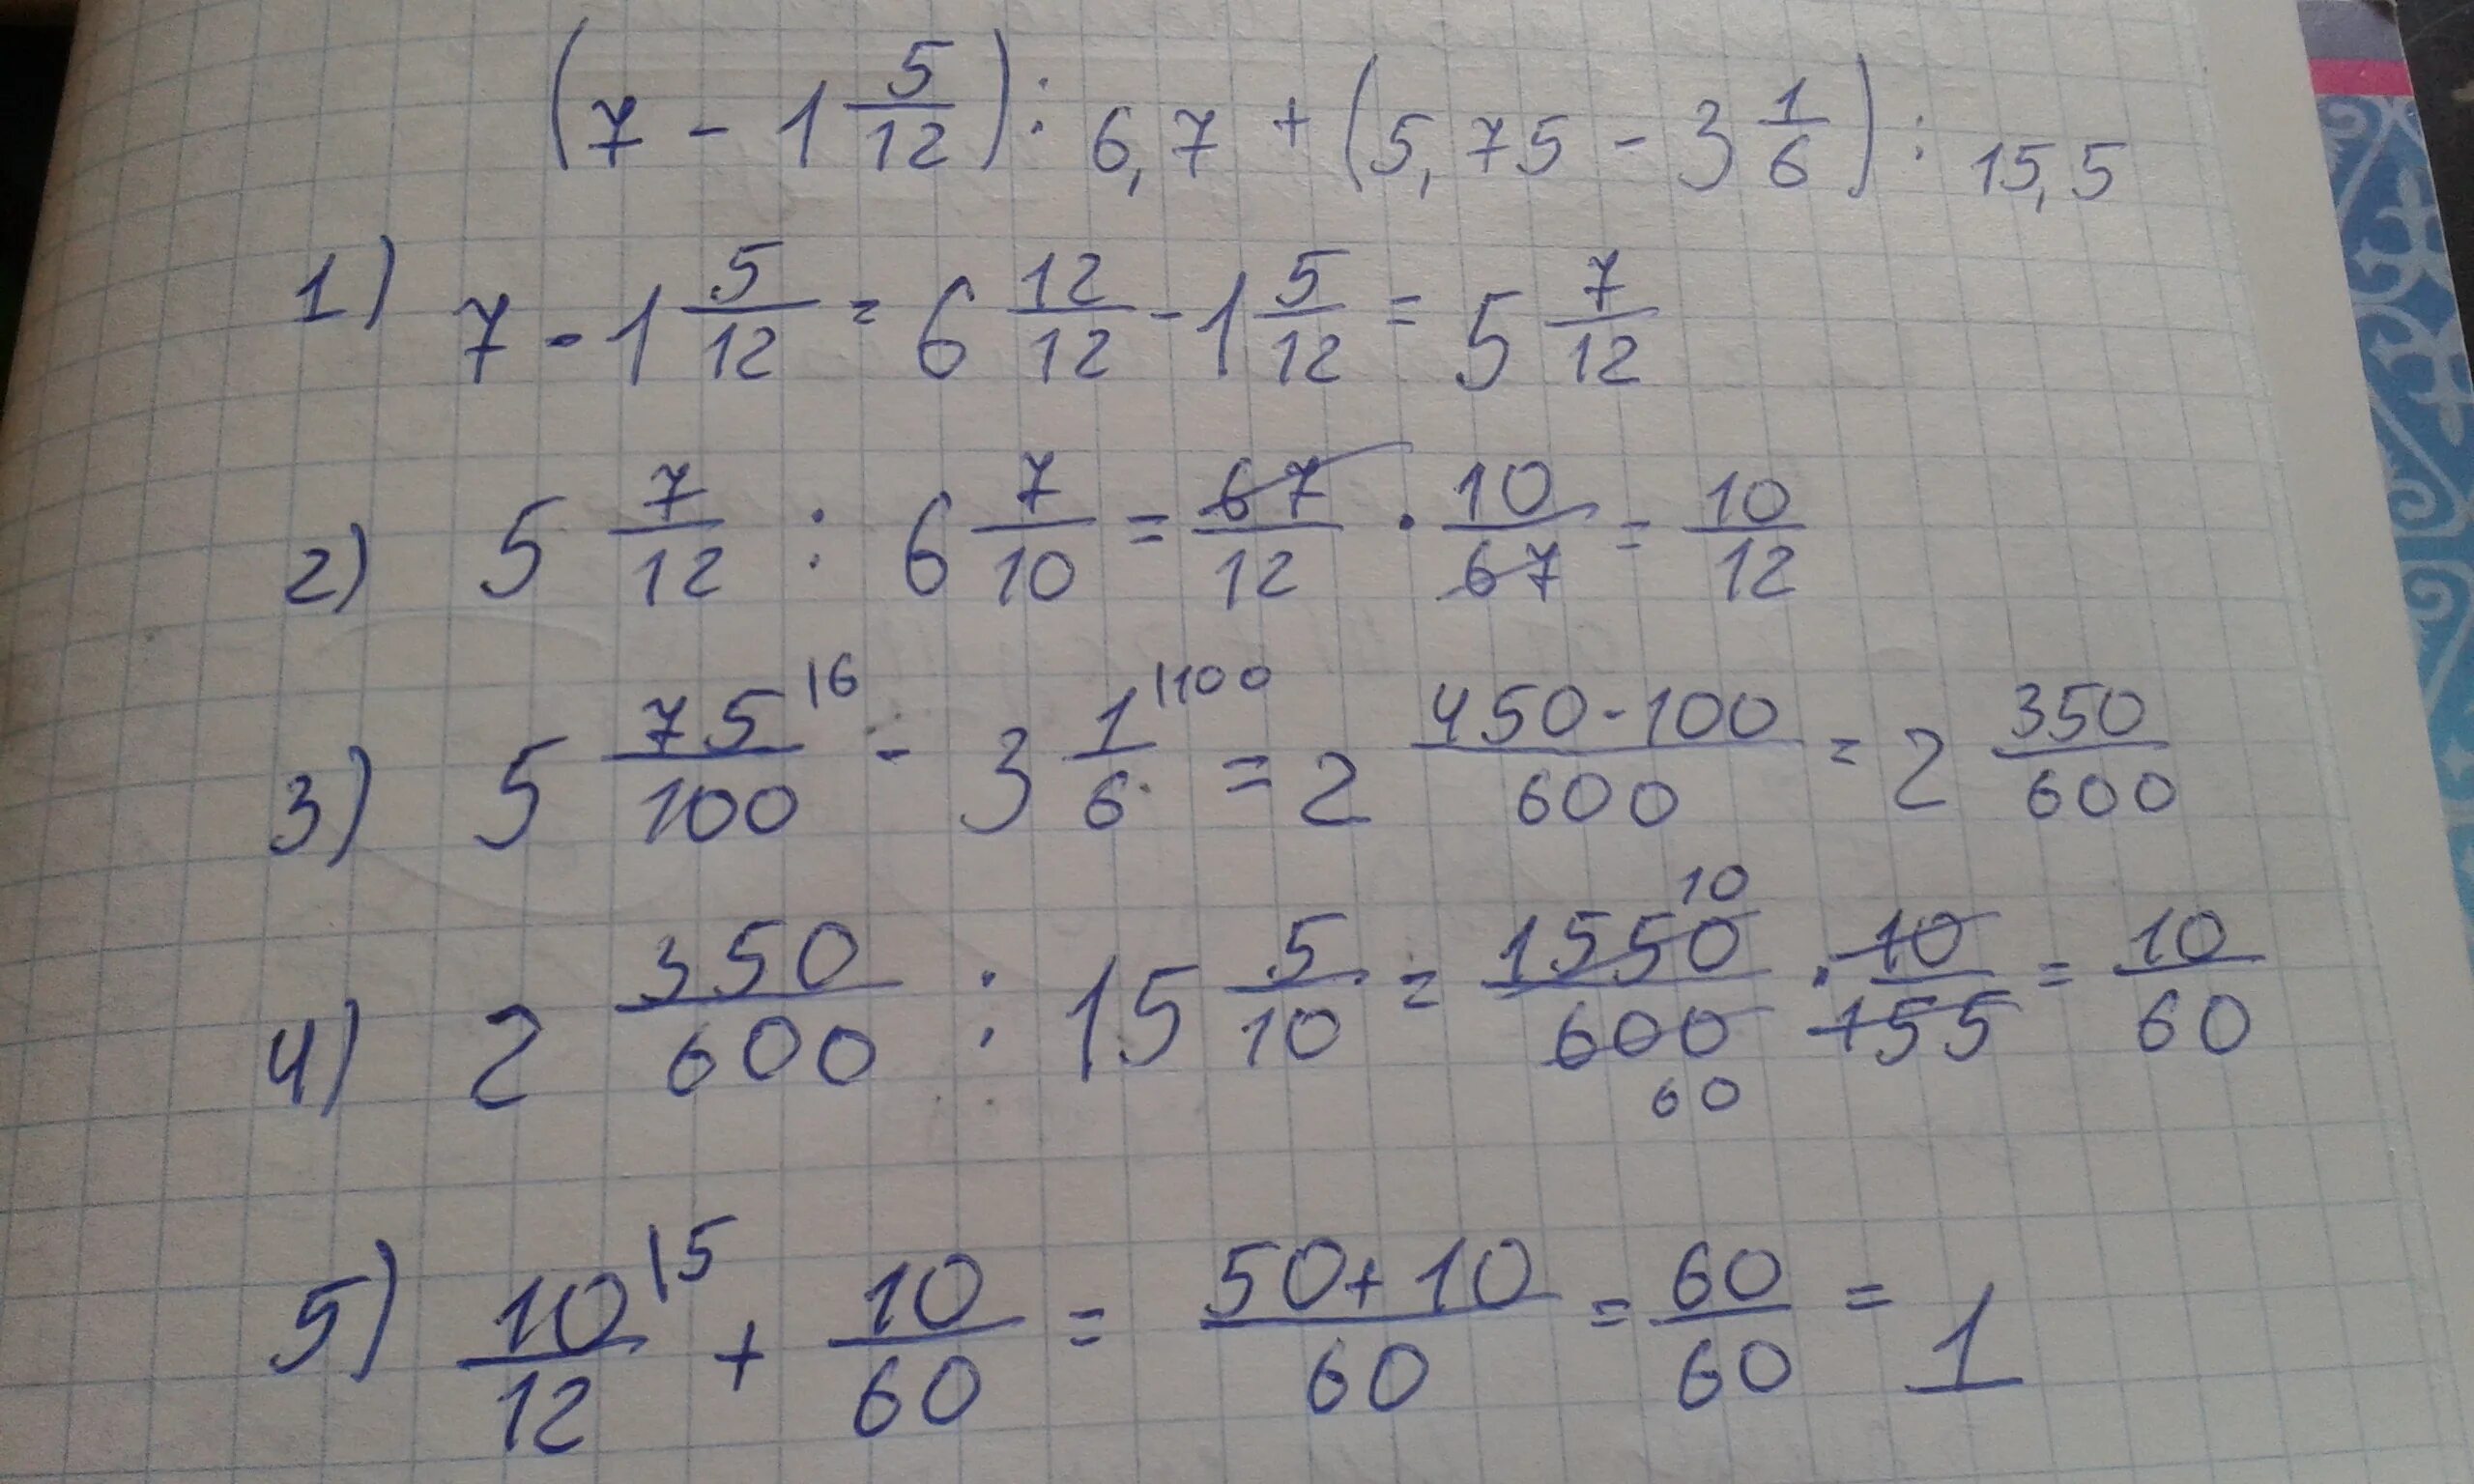 (7 - 1 5/12) : 6,7 + (5,75 - 3 1/6) : 15,5
1) 7 - 1 5/12 = 6 12/12 - 1 5/12 = 5 7/12
2) 5 7/12 : 6 7/10 = 67/12 · 10/67 = 10/12
3) 5 75/100 |6 - 3 1/6 |100 = 2 450-100/600 = 2 350/600
4) 2 350/600 : 15 5/10 = 1550/600 10 60 · 10/155 = 10/60
5) 10/12 |5 + 10/60 = 50+10/60 = 60/60 = 1